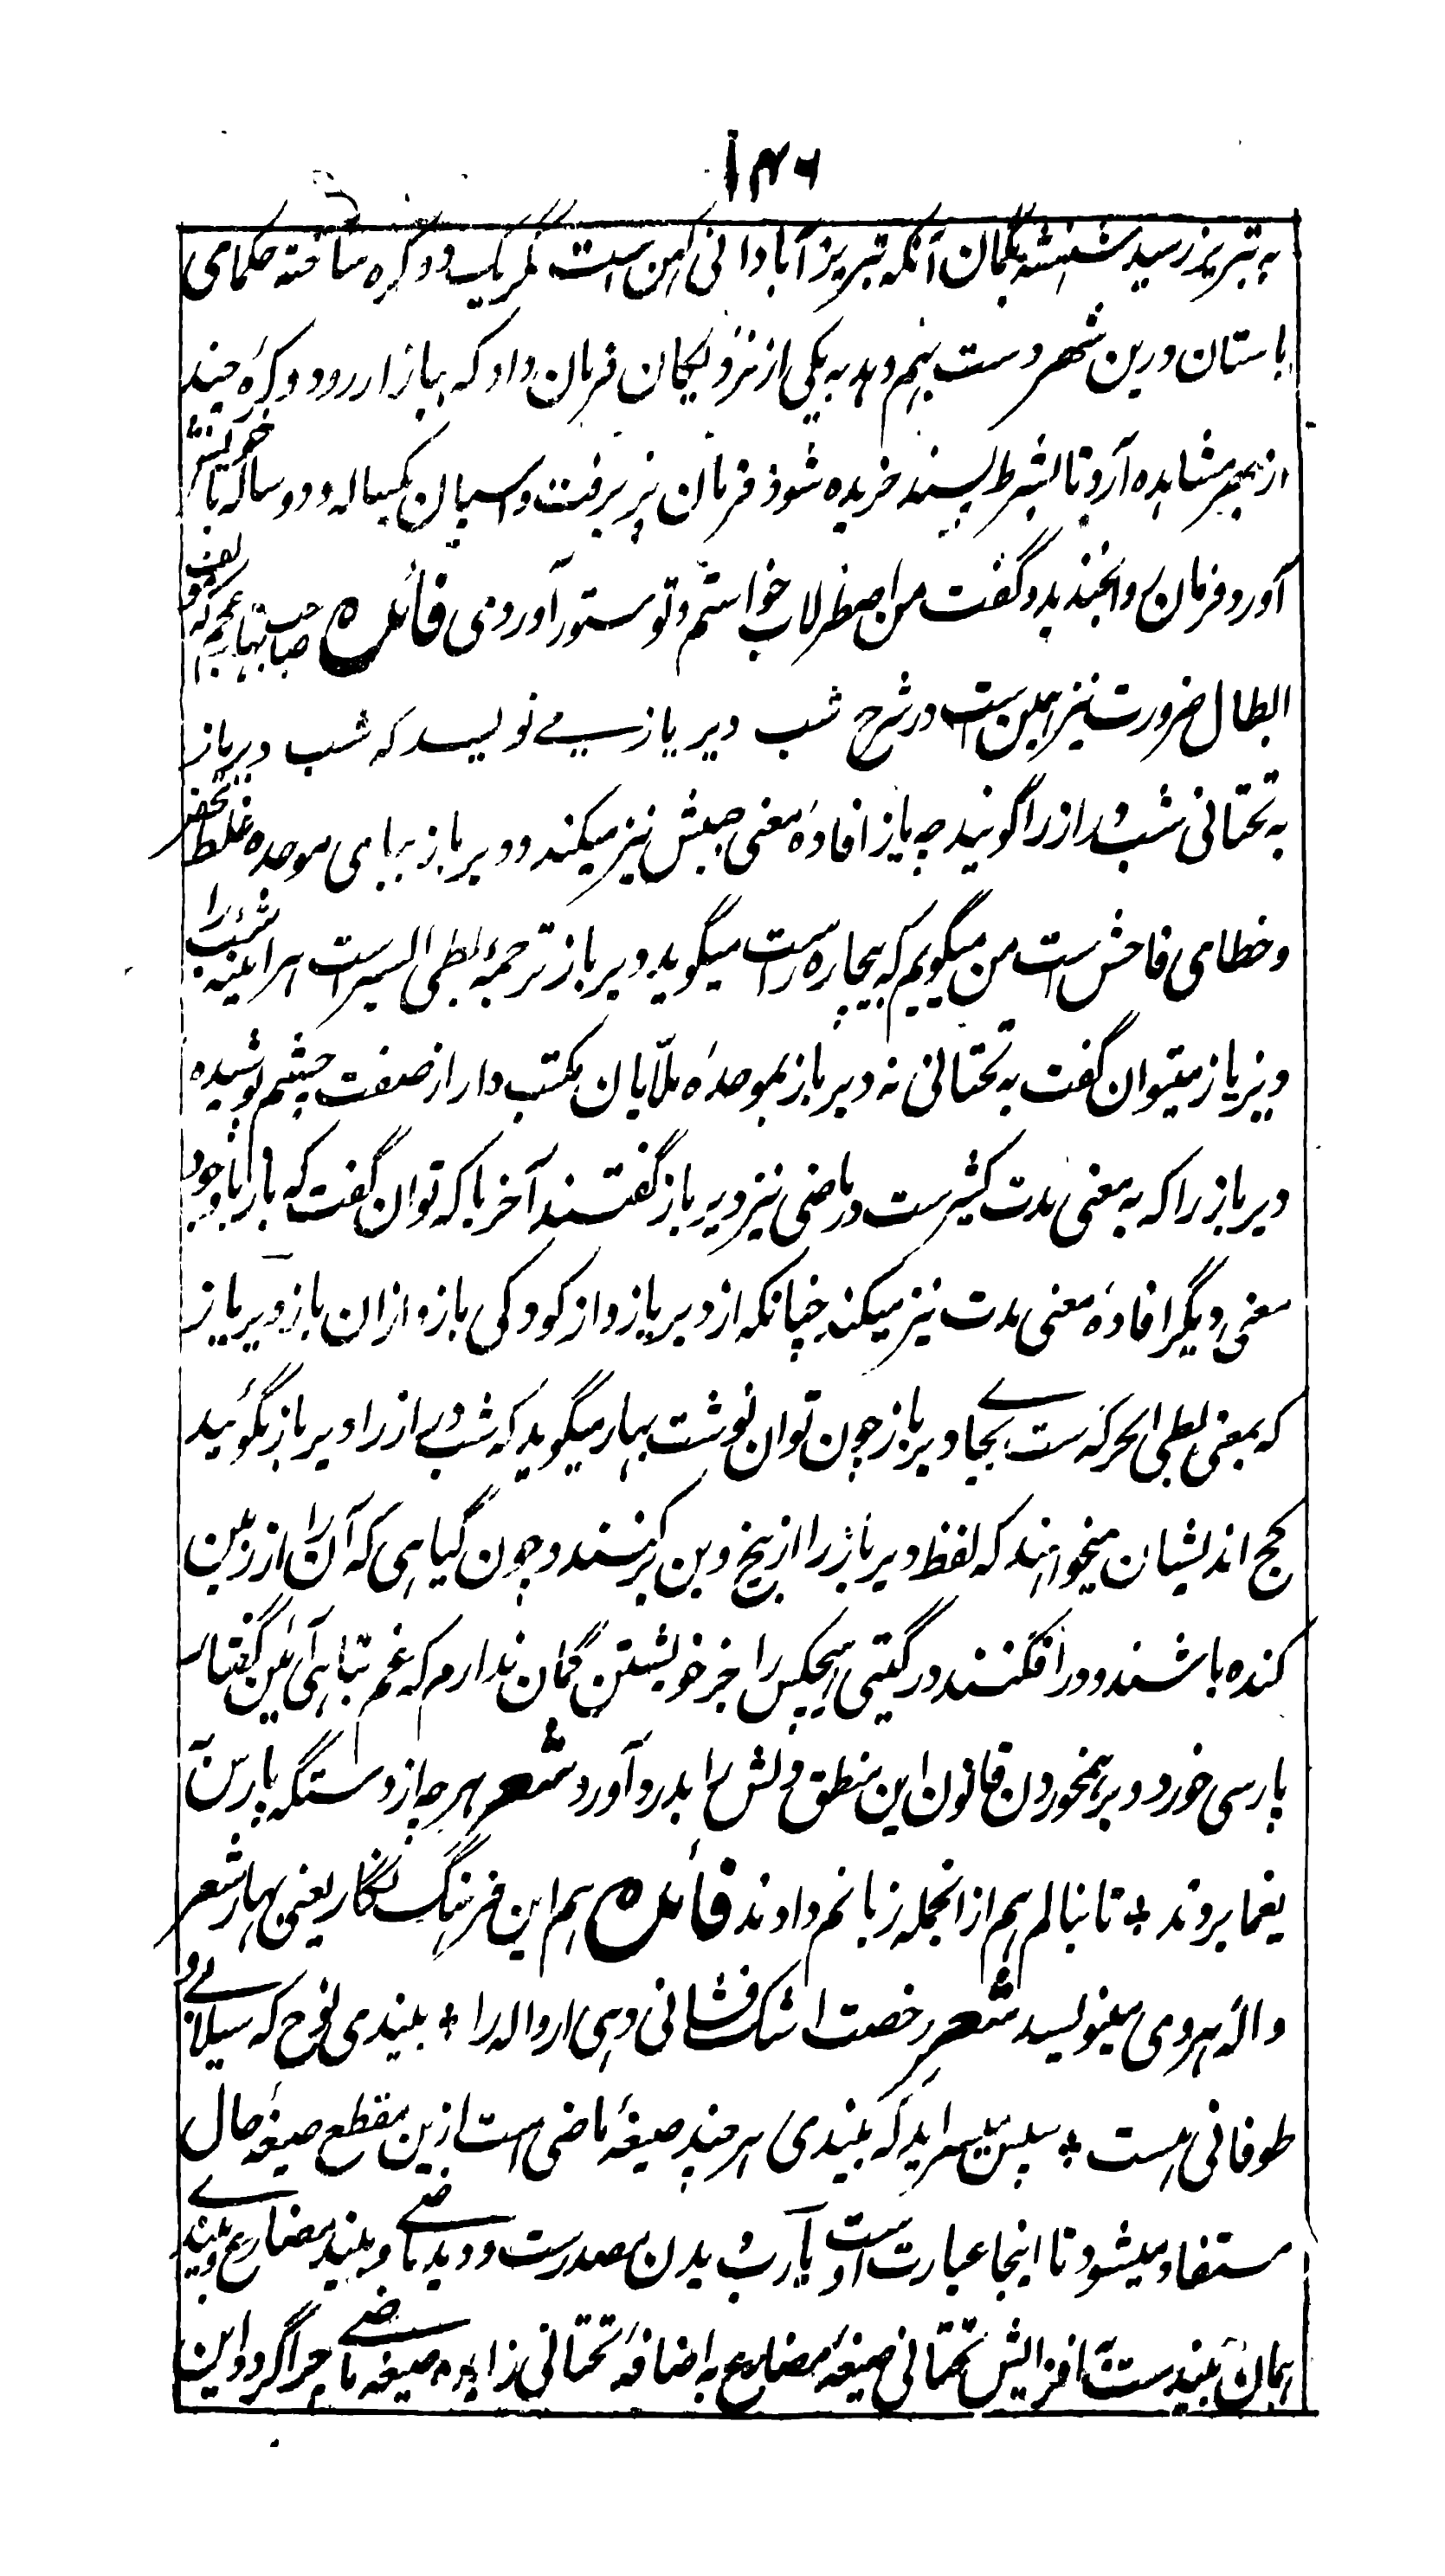 ۱۴۶
به تبریز رسید شهنشه بگمان آنکه تبریز آبادانی کهن است مگر یک دو کره ساخته حکمای
باستان درین شهر دست بهم دهد به یکی از نزدیکان فرمان داد که ببازار رود و کرهٔ چند
از بهر مشاهده آرد تا بشرط پسند خریده شود فرمان پذیر رفت و اسپان یکساله و دو ساله با خویش
آورد فرمان روا بخندید و گفت من اصطرلاب خواستم و تو ستور آوردی فائده صاحب بهار عجم که
ابطال ضرورت نیز همین ست در شرح شب دیر یاز می نویسد که شب دیر یاز
به تحتانی شب دراز را گویند چه یاز افادهٔ معنی جنبش نیز میکند و دیر باز ببای موحده غلط محض
و خطای فاحش ست من میگویم که بیچاره راست میگوید دیر یاز ترجمهٔ بطی السیر است هر آئینه شب را
دیر یاز میتوان گفت به تحتانی نه دیر باز بموحده ملّایان مکتب دار از صفت چشم پوشیده
دیر باز را که به معنی مدت کثیر ست در ماضی نیز دیر یاز گفتند آخر با که توان گفت که باز با وجود
معنی دیگر افادهٔ معنی مدت نیز میکند چنانکه از دیر باز و از کودکی باز و ازان باز دیر یاز
که بمعنی بطی الحرکه ست بجای دیر باز چون توان نوشت بهار میگوید که شب دراز را دیر باز نگوئید
کج اندیشان میخواهند که لفظ دیر باز را از بیخ و بن برکنند و چون گیاهی که آن را از زمین
کنده باشند دور افگنند در گیتی هیچکس را جز خویشتن گمان ندارم که غم تباهی آئین گفتار
پارسی خورد و بر همخوردن قانون این منطق دلش را بدرد آورد شعر هر چه از دستگه پارس
بیغما بردند * تا بنالم هم ازانجمله زبانم دادند فائده هم این فرهنگ نگار یعنی بهار شعر
واله هروی مینویسد شعر رخصت اشک فشانی دهی ار واله را * بیندی نوح که سیلابی و
طوفانی هست * سپس میسراید که بیندی هر چند صیغهٔ ماضی است ازین مقطع صیغهٔ حال
مستفاد میشود تا اینجا عبارت اوست یا رب دیدن مصدر ست و دید ماضی و بیند مضارع و بیندی
همان بیند ست بافزایش تحتانی صیغهٔ مضارع به اضافهٔ تحتانی زایده صیغهٔ ماضی چرا گردد این